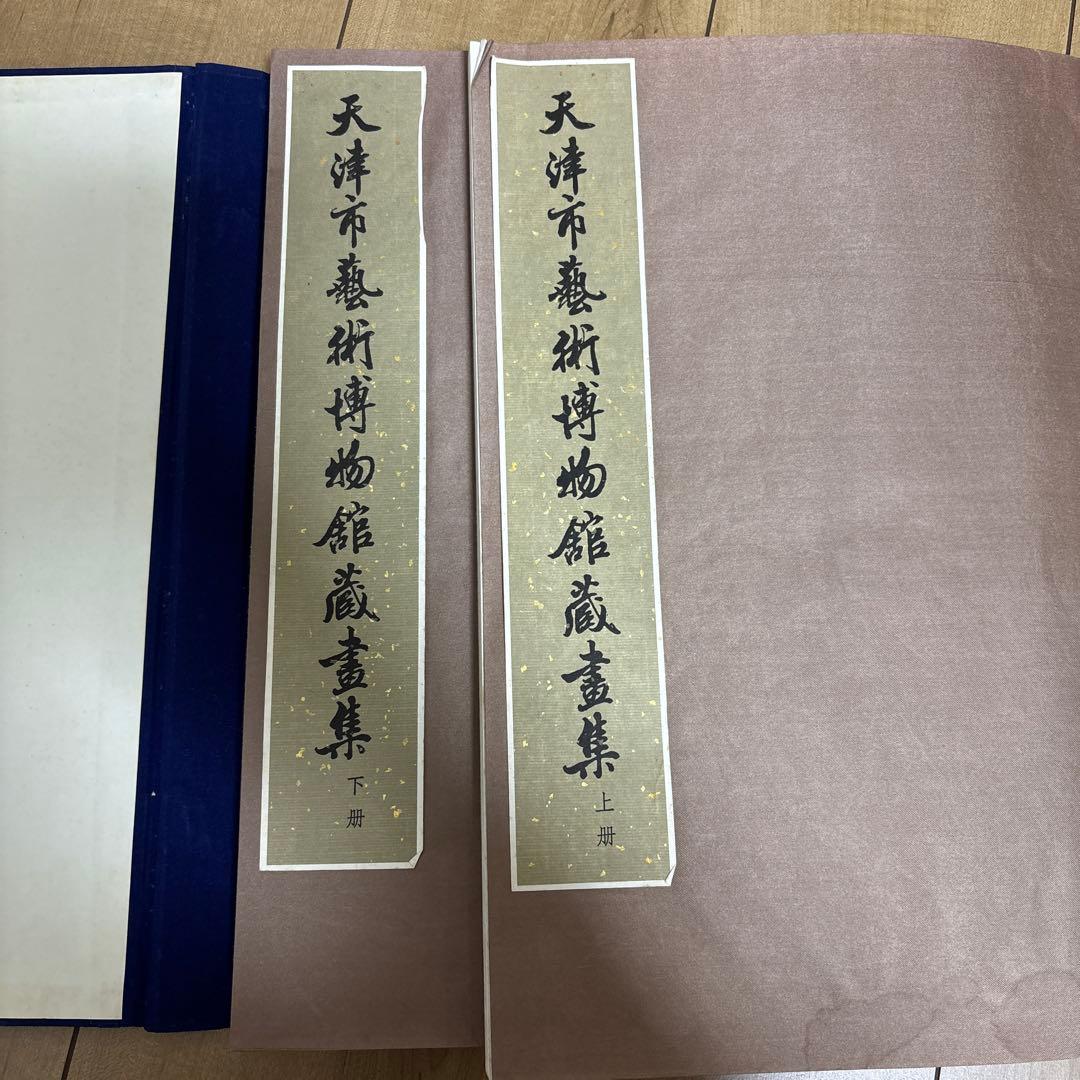 天津市藝術博物館藏畫集
上册
天津市藝術博物館藏畫集
下册